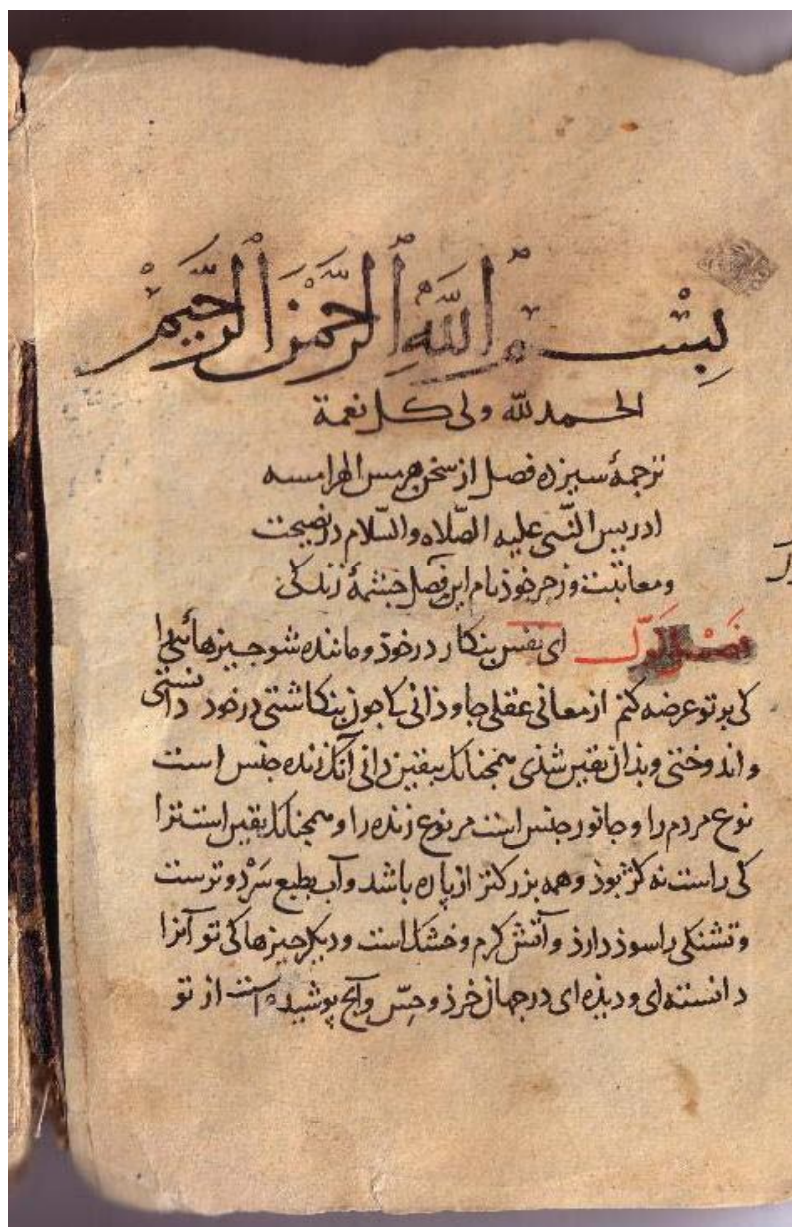 بِسْمِ اللَّهِ الرَّحْمٰنِ الرَّحِيمِ
الحمد لله ولی کل نعمة
ترجمهٔ سیزده فصل از سخن هرمس الهرامسه
ادریس النّبی علیه الصّلاه والسّلام در نصیحت
ومعاتبت وزجر خوذ نام این فصل جشمهٔ زندکی
فصل اول ای نفس بنکار در خوذ و ماننده شو جیزهائی را
کی بر تو عرضه کنم از معانی عقلی جاوذانی کا جون بنکاشتی در خود دانستی
واندوختی وبذان یقین شذی همجنانک بیقین دانی آنک زنده جنس است
نوع مردم را و جانور جنس است مر نوع زنده را و همجنانک یقین است ترا
کی راست نه کژ بوذ وهمه بزرکتر از پاره باشد وآب بطبع سَرْد وترست
وتشنکی را سوذ دارذ وآتش کرم وخشک است ودیکر جیزها کی تو آنرا
دانسته‌ای ودیذه‌ای در جهان خرذ وحِسّ وآنج پوشیده است از تو